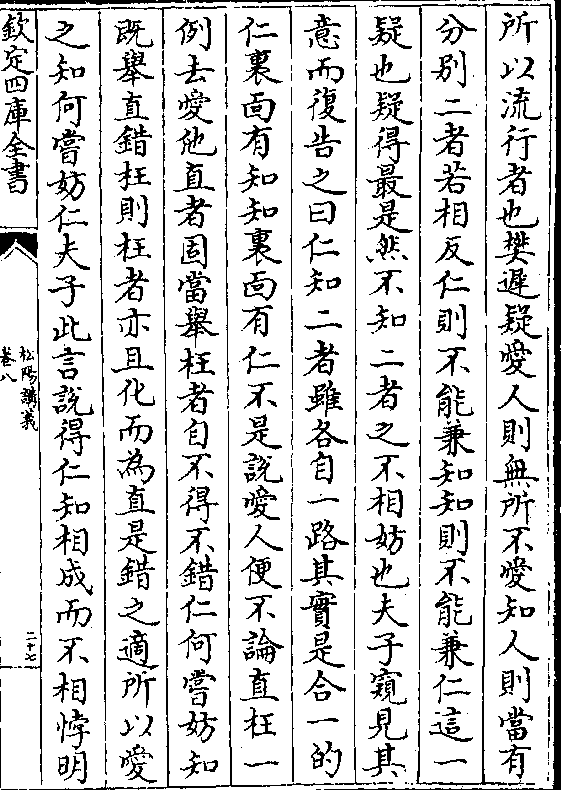 所以流行者也樊遲疑愛人則無所不愛知人則當有
分别二者若相反仁則不能兼知知則不能兼仁這一
疑也疑得最是然不知二者之不相妨也夫子窺見其
意而復告之曰仁知二者雖各自一路其實是合一的
仁裏面有知知裏面有仁不是說愛人便不論直枉一
例去愛他直者固當舉枉者自不得不錯仁何嘗妨知
既舉直錯枉則枉者亦且化而為直是錯之適所以愛
之知何嘗妨仁夫子此言說得仁知相成而不相悖明
欽定四庫全書
松陽講義
卷八
二十七